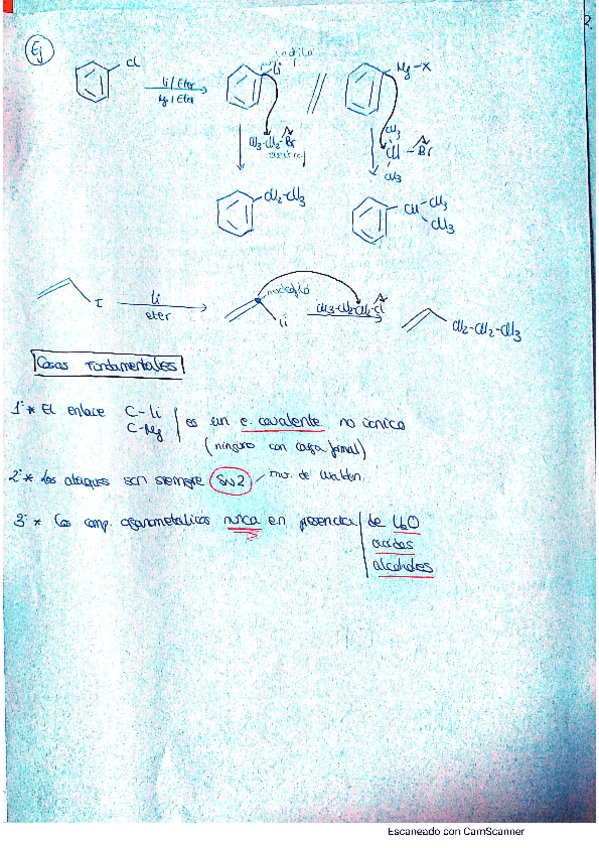 2.
Ej
Cl
Li / Eter
Mg / Eter
nucleófilo
Li
Mg-X
CH3-CH2-Br
CH3
CH-Br
CH3
CH2-CH3
CH-CH3
CH3
I
Li
eter
nucleófilo
Li
CH3-CH2-CH2-Cl
CH2-CH2-CH3
Cosas Fundamentales
1º * El enlace C-Li
C-Mg
es un e. covalente no iónico
(ninguno con carga formal)
2º * Los ataques son siempre SN2 / inv. de Walden.
3º * Los comp. organometalicos nunca en presencia de H2O
acidos
alcoholes
Escaneado con CamScanner